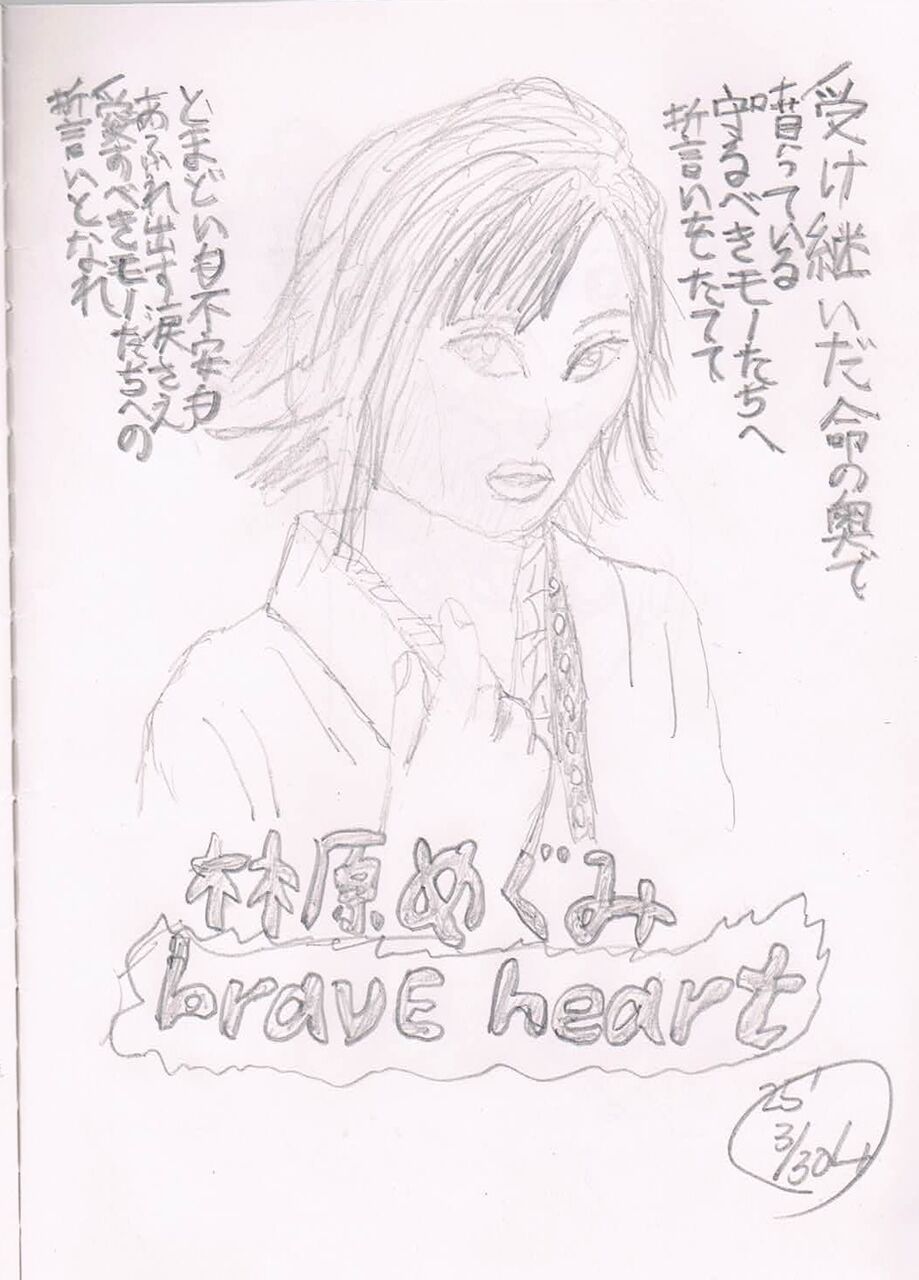 受け継いだ命の奥で
守るべきモノたちへ
誓いをたてて
とまどいも不安も
あふれ出す涙さえ
愛すべきモノたちへの
誓いとなれ
林原めぐみ
bravE heart
25'
3/30